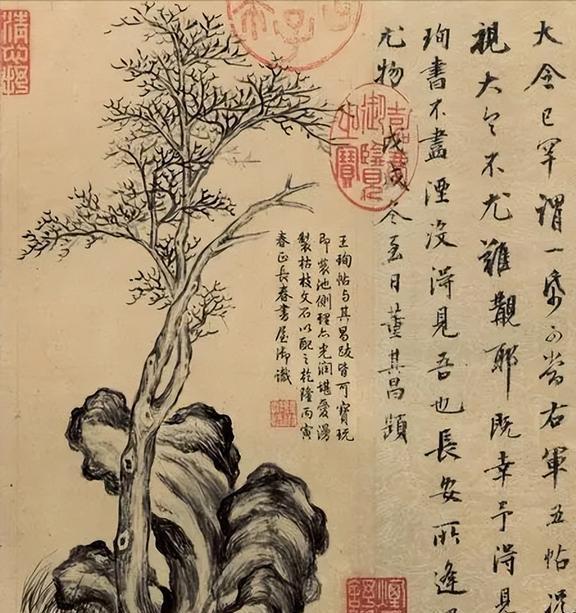 大令已罕謂一紙可當右軍五帖況
視大令不尤難覯耶既幸予得見
珣書不盡湮沒得見吾也長安所逢
尤物戊戌冬至日董其昌題
王珣帖与其昌跋皆可寶玩
即裝池側理亦光润堪愛漫
製枯枝文石以配之乾隆丙寅
春正長春書屋御識
嘉慶御覽之寶